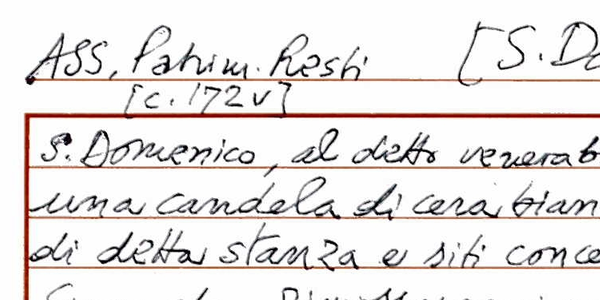 ASS, Patrim. Resti [S. Do
[c. 172v]
S. Domenico, al detto venerab
una candela di cera bian
di detta stanza e siti conce